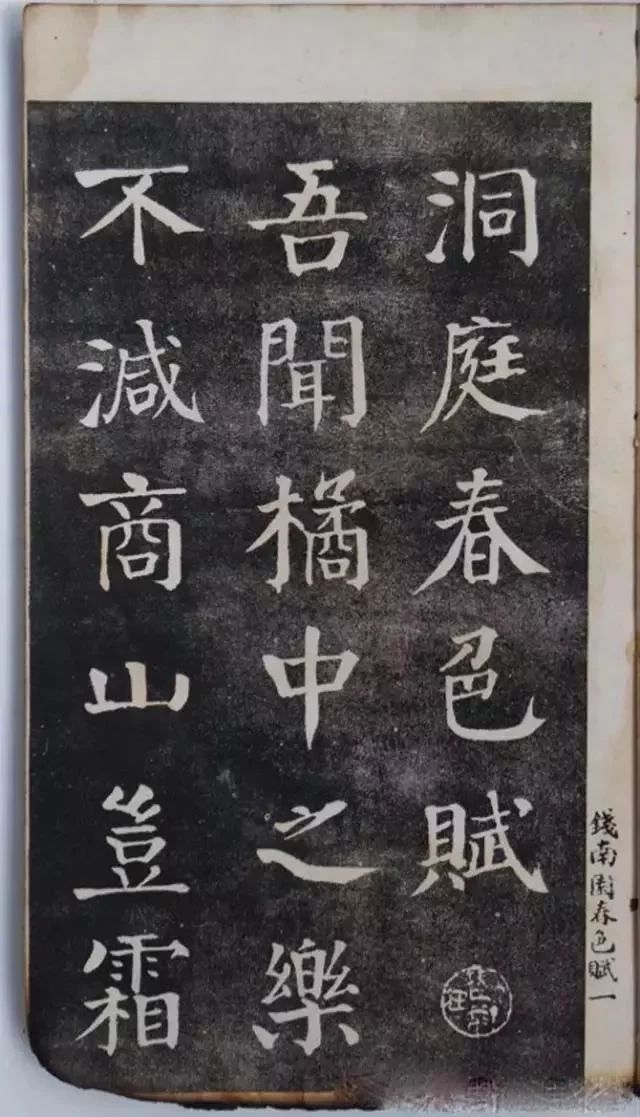 洞庭春色賦
吾聞橘中之樂
不減商山豈霜
錢南園春色賦一